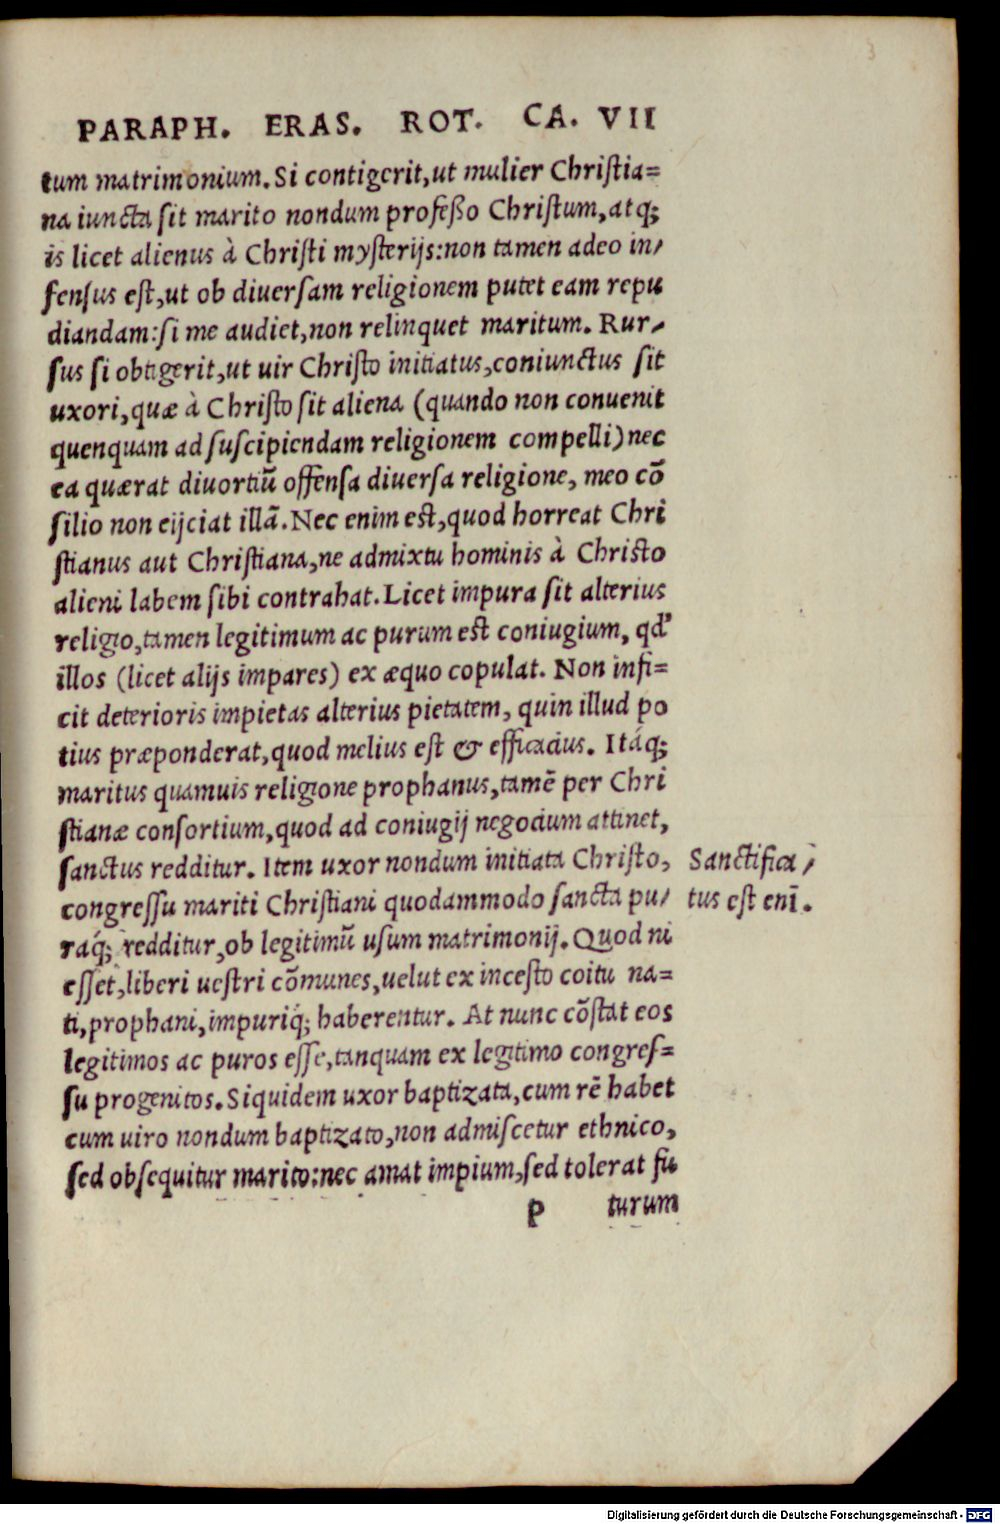 PARAPH. ERAS. ROT. CA. VII
tum matrimonium. Si contigerit, ut mulier Christia=
na iuncta sit marito nondum professo Christum, atq;
is licet alienus à Christi mysterijs: non tamen adeo in/
fensus est, ut ob diuersam religionem putet eam repu
diandam: si me audiet, non relinquet maritum. Rur/
sus si obtigerit, ut uir Christo initiatus, coniunctus sit
uxori, quæ à Christo sit aliena (quando non conuenit
quenquam ad suscipiendam religionem compelli) nec
ea quærat diuortiũ offensa diuersa religione, meo cõ
silio non eijciat illã. Nec enim est, quod horreat Chri
stianus aut Christiana, ne admixtu hominis à Christo
alieni labem sibi contrahat. Licet impura sit alterius
religio, tamen legitimum ac purum est coniugium, qd'
illos (licet alijs impares) ex æquo copulat. Non infi=
cit deterioris impietas alterius pietatem, quin illud po
tius præponderat, quod melius est & efficacius. Itáq;
maritus quamuis religione prophanus, tamẽ per Chri
stianæ consortium, quod ad coniugij negocium attinet,
sanctus redditur. Item uxor nondum initiata Christo,
congressu mariti Christiani quodammodo sancta pu/
ráq; redditur, ob legitimũ usum matrimonij. Quod ni
esset, liberi uestri cõmunes, uelut ex incesto coitu na=
ti, prophani, impuriq́; haberentur. At nunc cõstat eos
legitimos ac puros esse, tanquam ex legitimo congres=
su progenitos. Siquidem uxor baptizata, cum rẽ habet
cum uiro nondum baptizato, non admiscetur ethnico,
sed obsequitur marito: nec amat impium, sed tolerat fu
P turum
Sanctifica/
tus est enĩ.
Digitalisierung gefördert durch die Deutsche Forschungsgemeinschaft - DFG